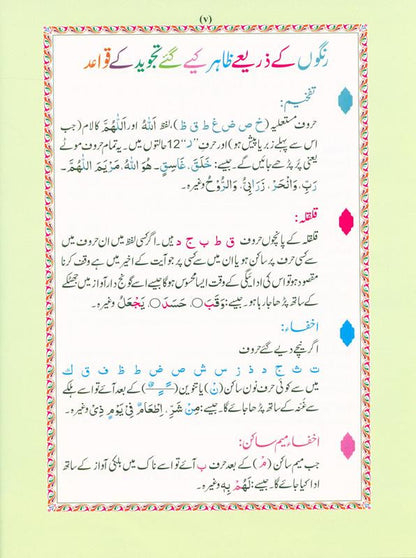 (۷)
رنگوں کے ذریعے ظاہر کیے گئے تجوید کے قواعد
تفخیم:
حروف مستعلیہ (خ ص ض غ ط ق ظ)، لفظ اَللّٰهُ اور اَللّٰهُمَّ کا لام (جب
اس سے پہلے زبر یا پیش ہو) اور حرفِ "ر" 12 حالتوں میں۔ یہ تمام حروف موٹے
یعنی پُر پڑھے جائیں گے۔ جیسے: خَلَقَ، غَاسِقٍ۔ هُوَ اللّٰهُ، مَرْيَمَ اللّٰهُمَّ۔
رَبِّ، وَانْحَرْ، زَرَابِيُّ، وَالرُّوْحُ وغیرہ۔
قلقلہ:
قلقلہ کے پانچوں حروف ق ط ب ج د ہیں۔ اگر کسی لفظ میں ان حروف میں
سے کسی حرف پر ساکن ہو یا ان میں سے کسی پر جو آیت کے اخیر میں ہے وقف کرنا
مقصود ہو تو اس کی ادائیگی کے وقت ایسا محسوس ہوگا جیسے اسے گونج دار آواز میں جھٹکے
کے ساتھ پڑھا جا رہا ہو۔ جیسے: وَقَبَ○ حَسَدَ○ يَجْعَلُ وغیرہ۔
اخفاء:
اگر نیچے دیے گئے حروف
ت ث ج د ذ ز س ش ص ض ط ظ ف ق ك
میں سے کوئی حرف نون ساکن (نْ) یا تنوین کے بعد آئے تو اسے ہلکے
سے غنہ کے ساتھ پڑھا جائے گا۔ جیسے: مِنْ شَرِّ، اِطْعَامٌ فِيْ يَوْمٍ ذِيْ وغیرہ۔
اخفاء میم ساکن:
جب میم ساکن (مْ) کے بعد حرف ب آئے تو اسے ناک میں ہلکی آواز کے ساتھ
ادا کیا جائے گا۔ جیسے: لَهُمْ بِهٖ وغیرہ۔